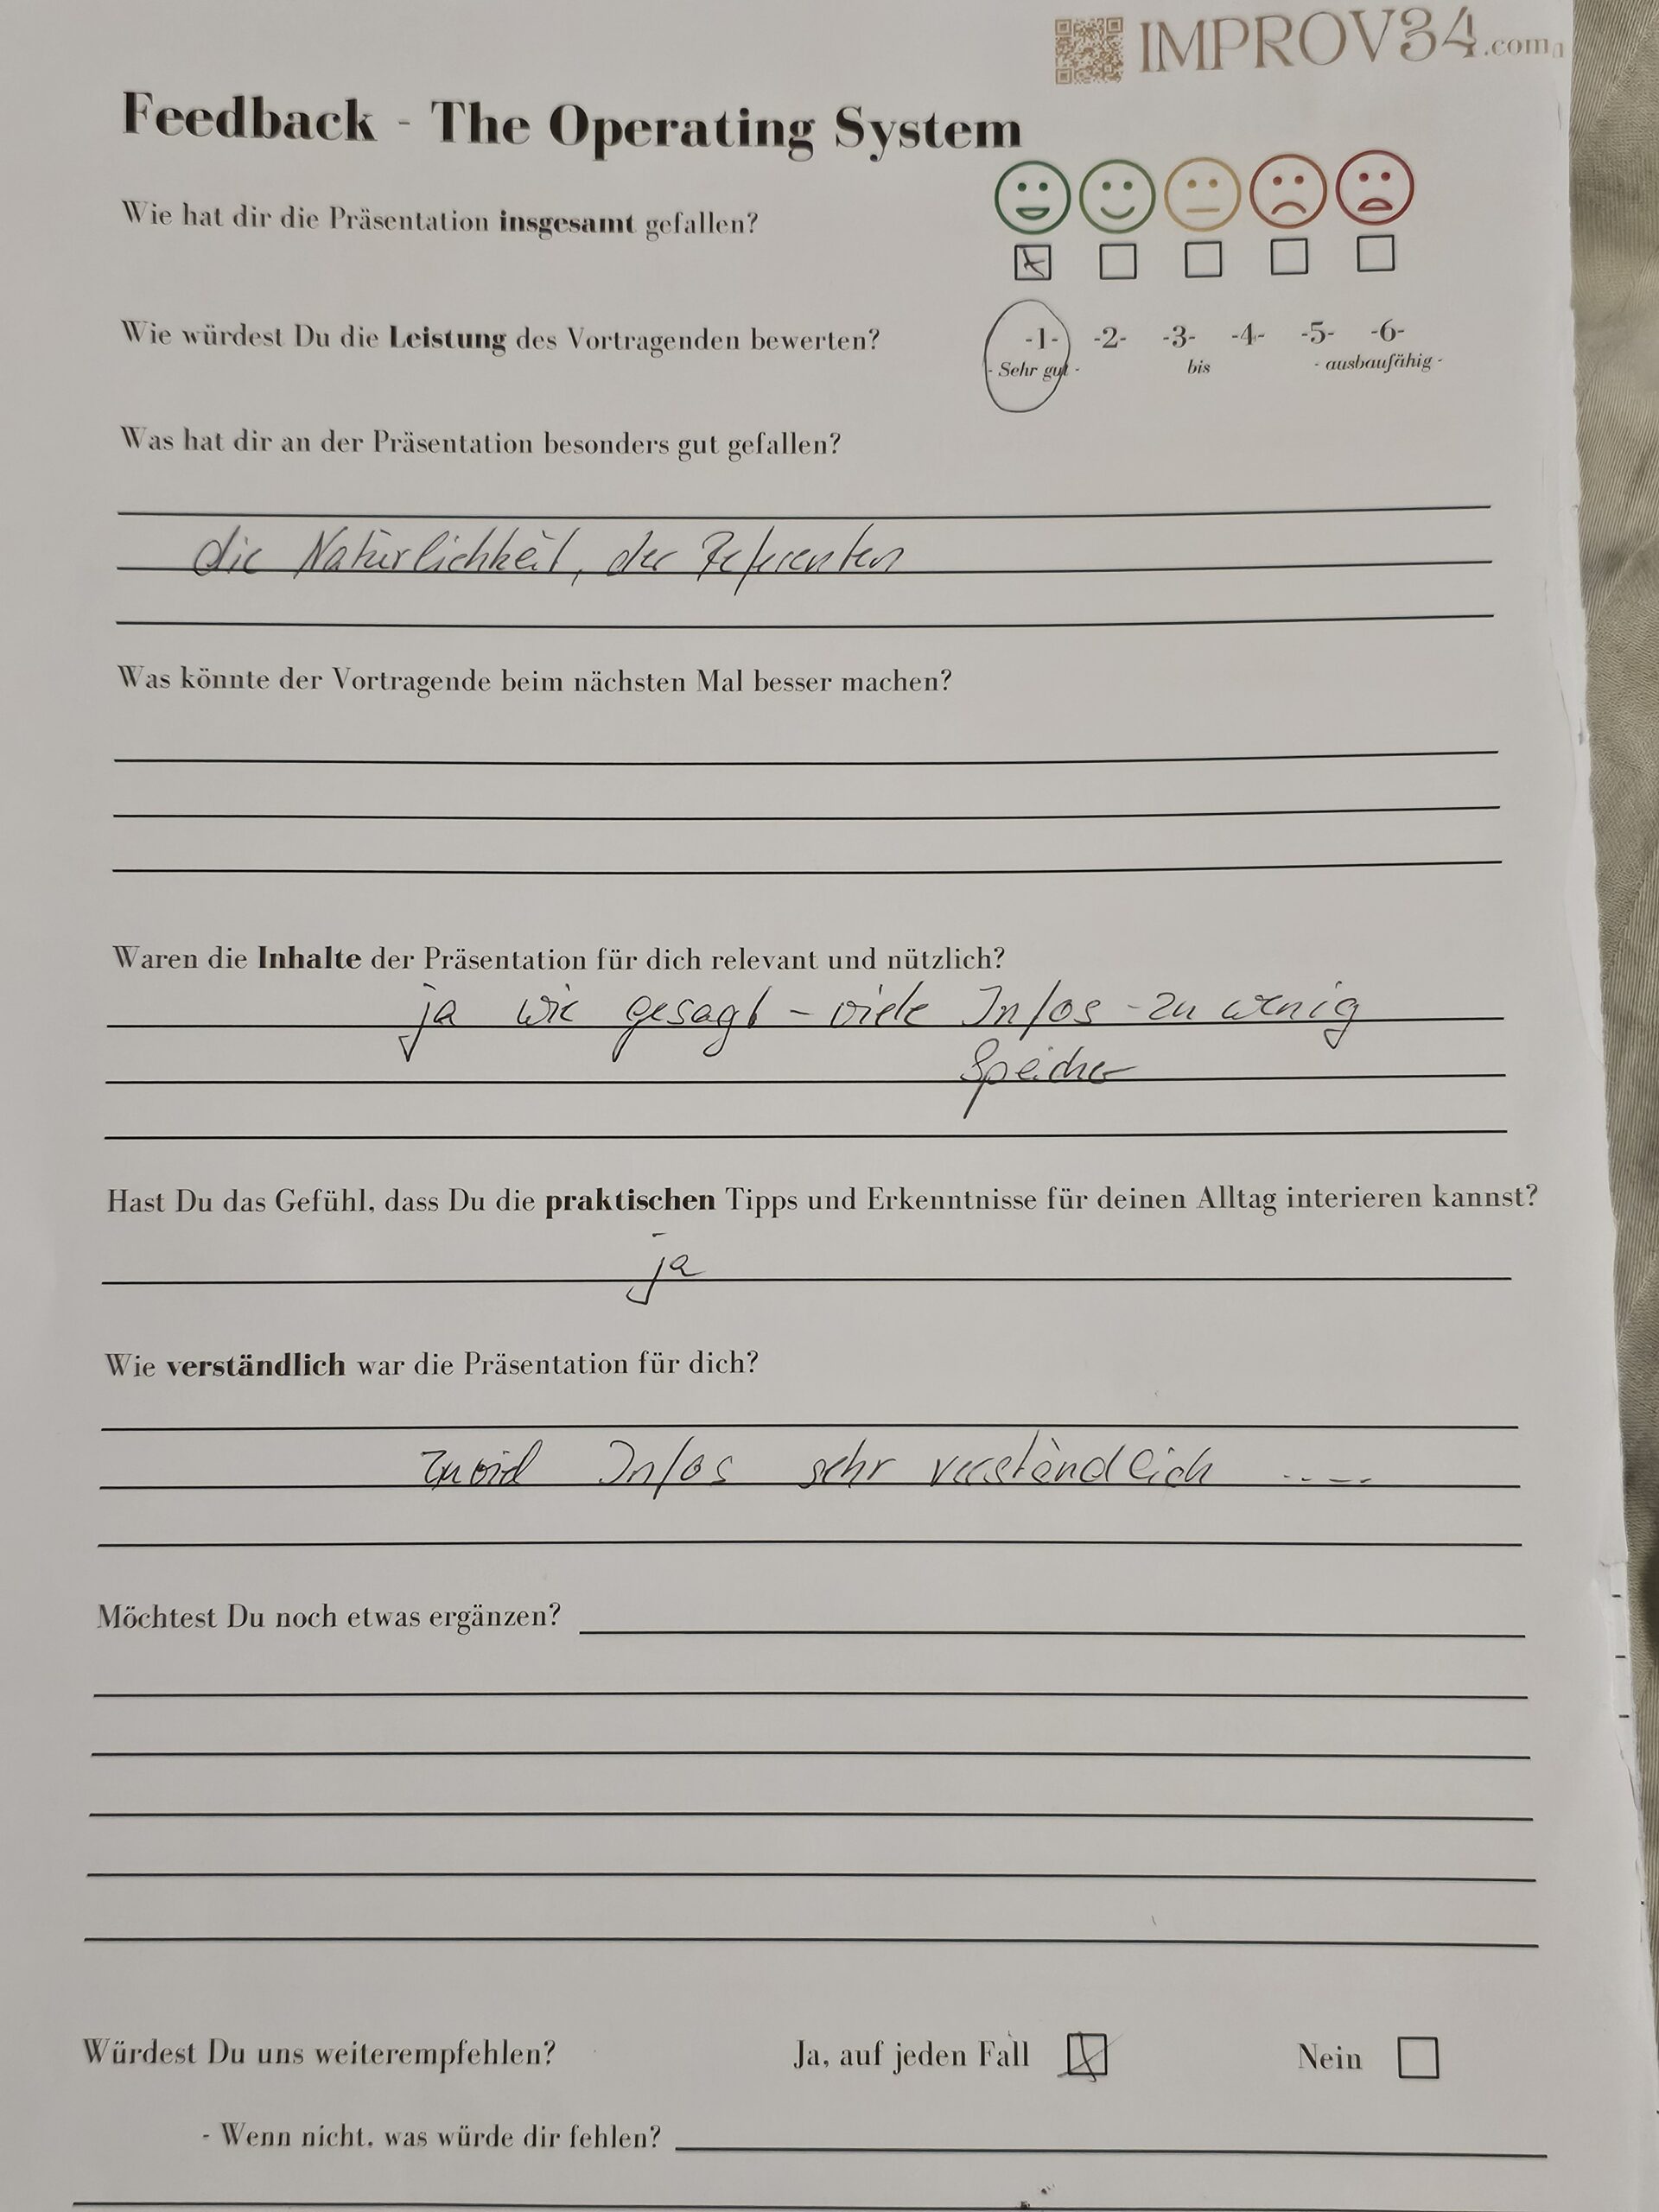 IMPROV34.com
Feedback - The Operating System
Wie hat dir die Präsentation insgesamt gefallen?
Wie würdest Du die Leistung des Vortragenden bewerten? -1- -2- -3- -4- -5- -6-
- Sehr gut - bis - ausbaufähig -
Was hat dir an der Präsentation besonders gut gefallen?
die Natürlichkeit, der Referenten
Was könnte der Vortragende beim nächsten Mal besser machen?
Waren die Inhalte der Präsentation für dich relevant und nützlich?
ja wie gesagt - viele Infos - zu wenig
Speicher
Hast Du das Gefühl, dass Du die praktischen Tipps und Erkenntnisse für deinen Alltag interieren kannst?
ja
Wie verständlich war die Präsentation für dich?
Infos sehr verständlich .....
Möchtest Du noch etwas ergänzen?
Würdest Du uns weiterempfehlen? Ja, auf jeden Fall Nein
- Wenn nicht, was würde dir fehlen?